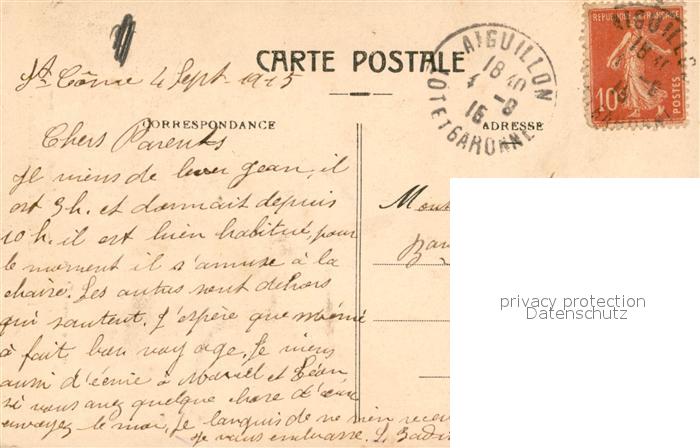 CARTE POSTALE
AIGUILLON
18 40
4 -8
15
LOT ET GARONNE
REPUBLIQUE FRANÇAISE
10
POSTES
St Côme 4 Sept 1915
CORRESPONDANCE
ADRESSE
Chers Parents
Je viens de lever Jean, il
est 3h. et dormait depuis
10 h. il est bien habitué, pour
le moment il s'amuse à la
chaise. Les autres sont dehors
qui sautent. J'espère que mémé
à fait bon voyage. Je viens
aussi d'écrire à Marcel et Léon
si vous avez quelque chose d'eux
envoyez le moi, je languis de ne rien recevoir
je vous embrasse.
privacy protection
Datenschutz